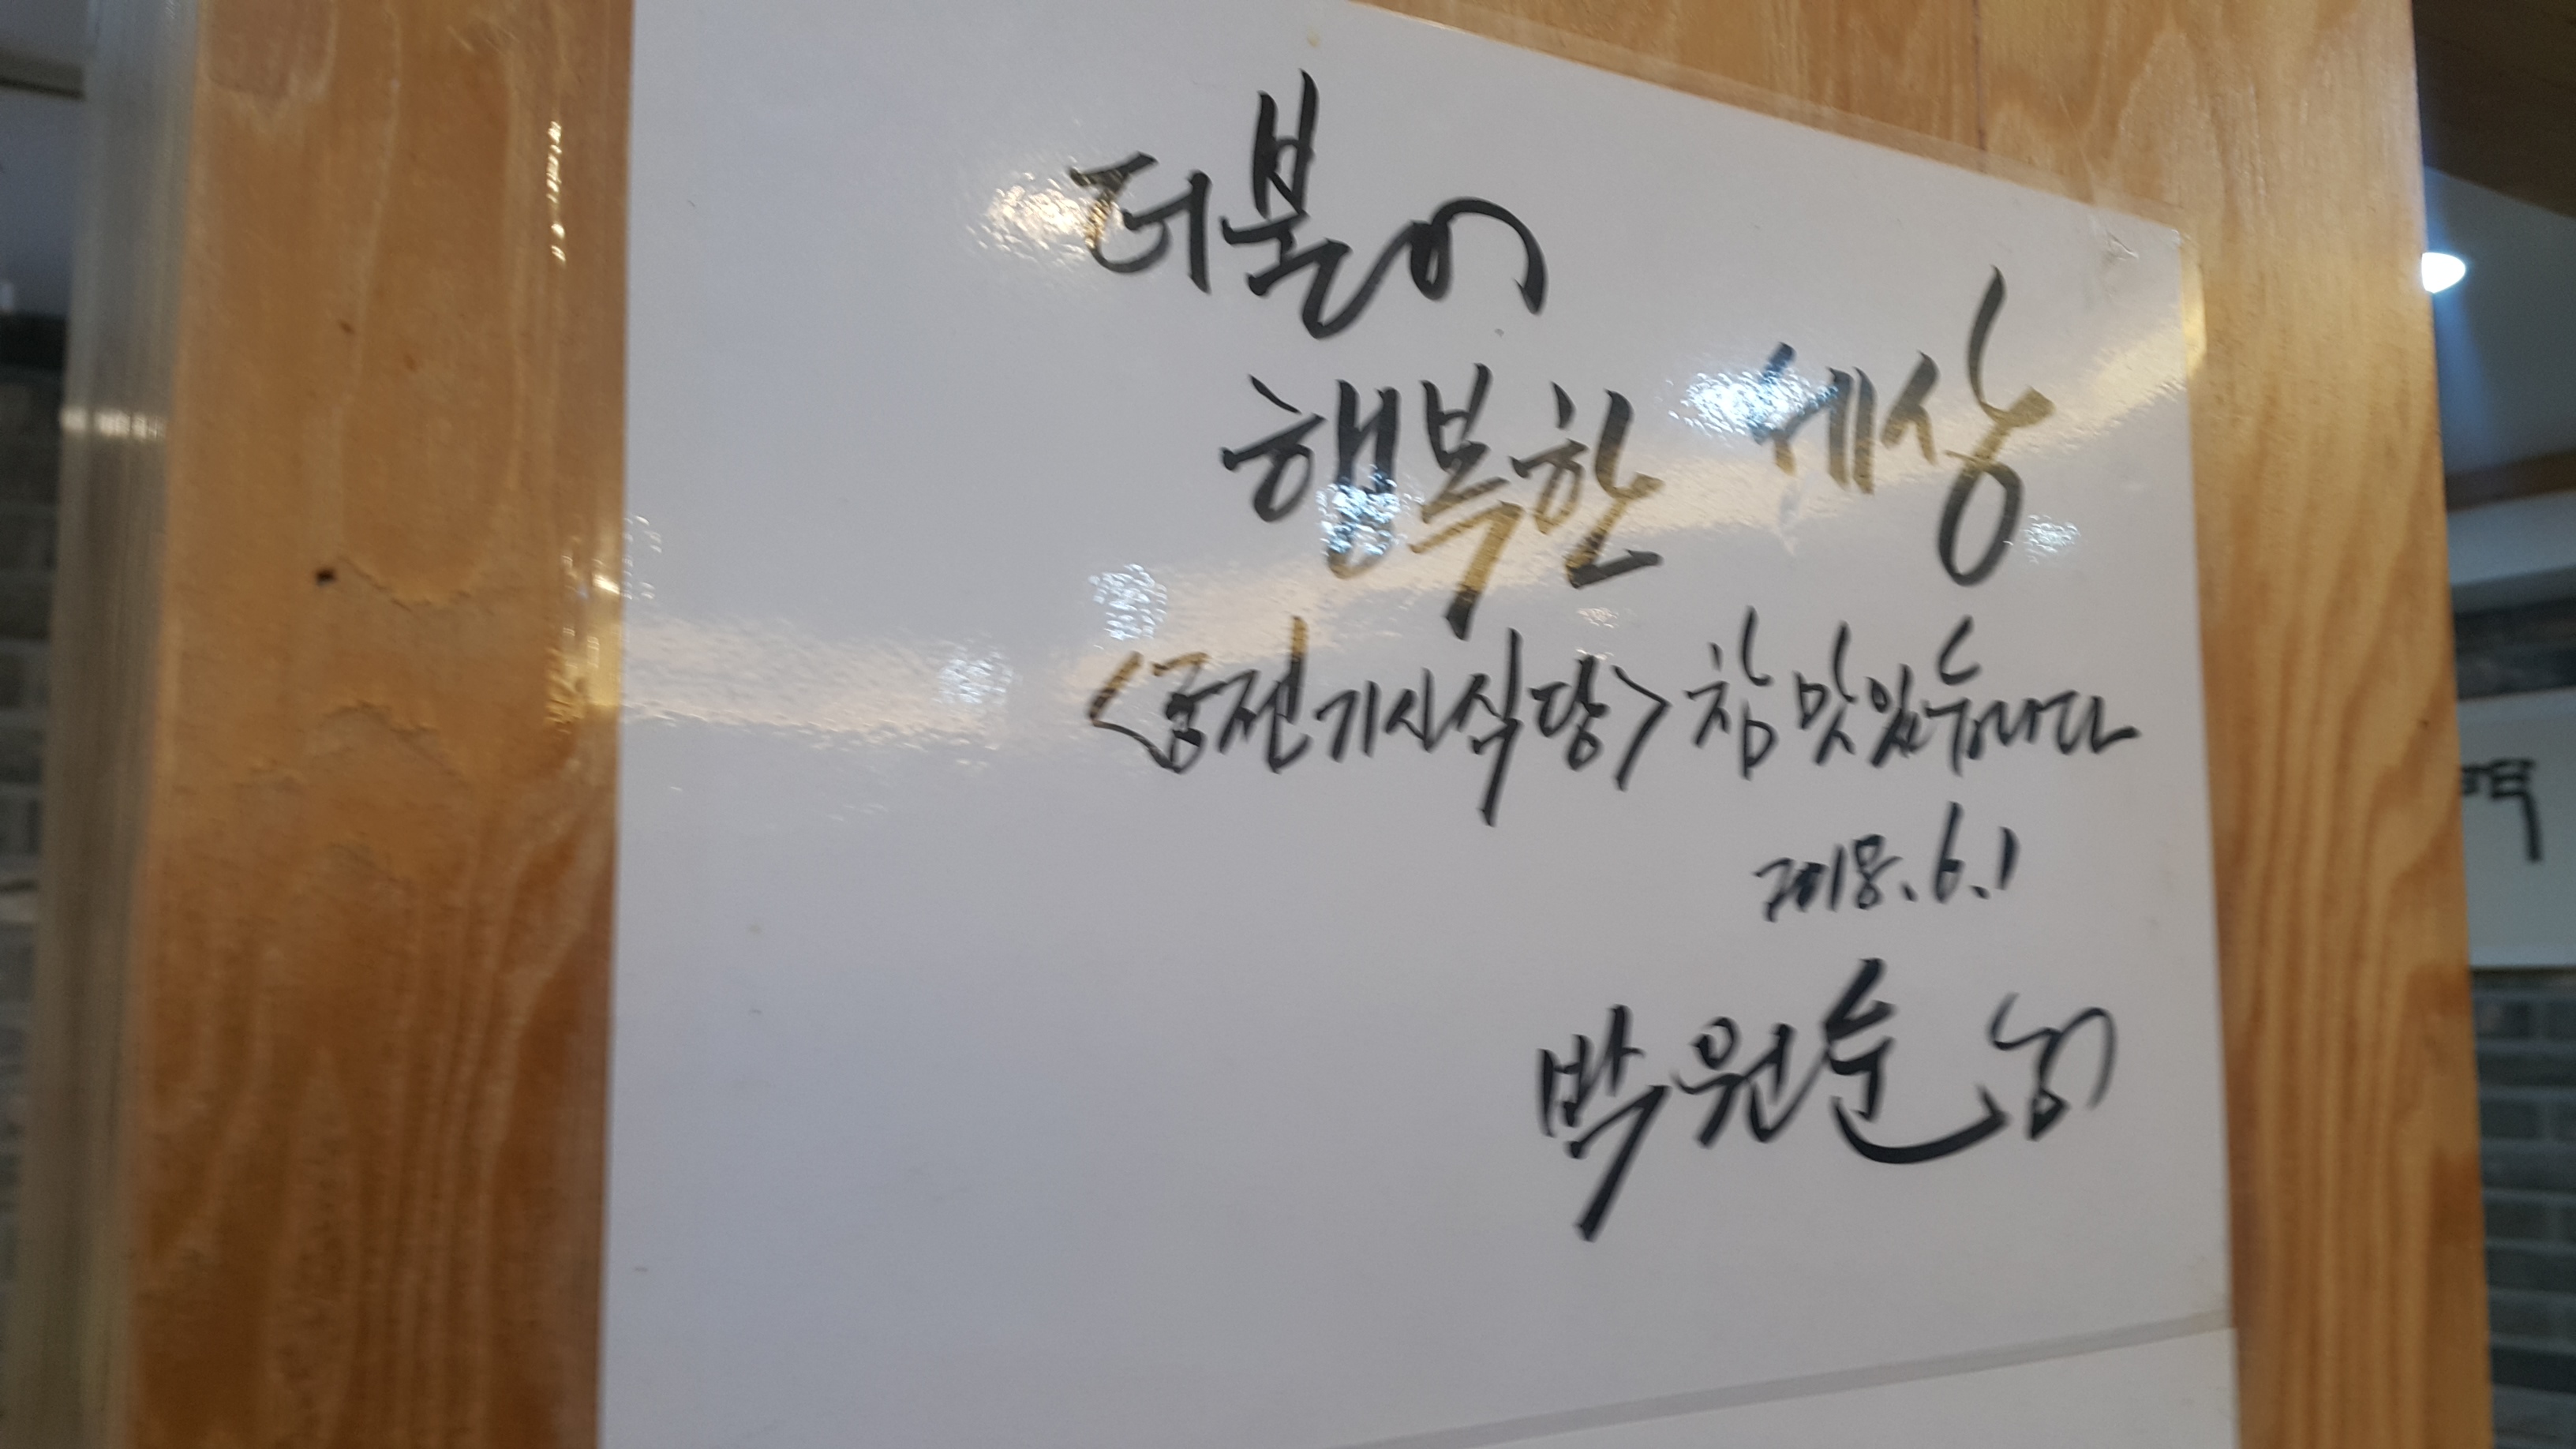 더불어
행복한 세상
<금전기사식당> 참 맛있습니다
2018. 6. 1
박원순